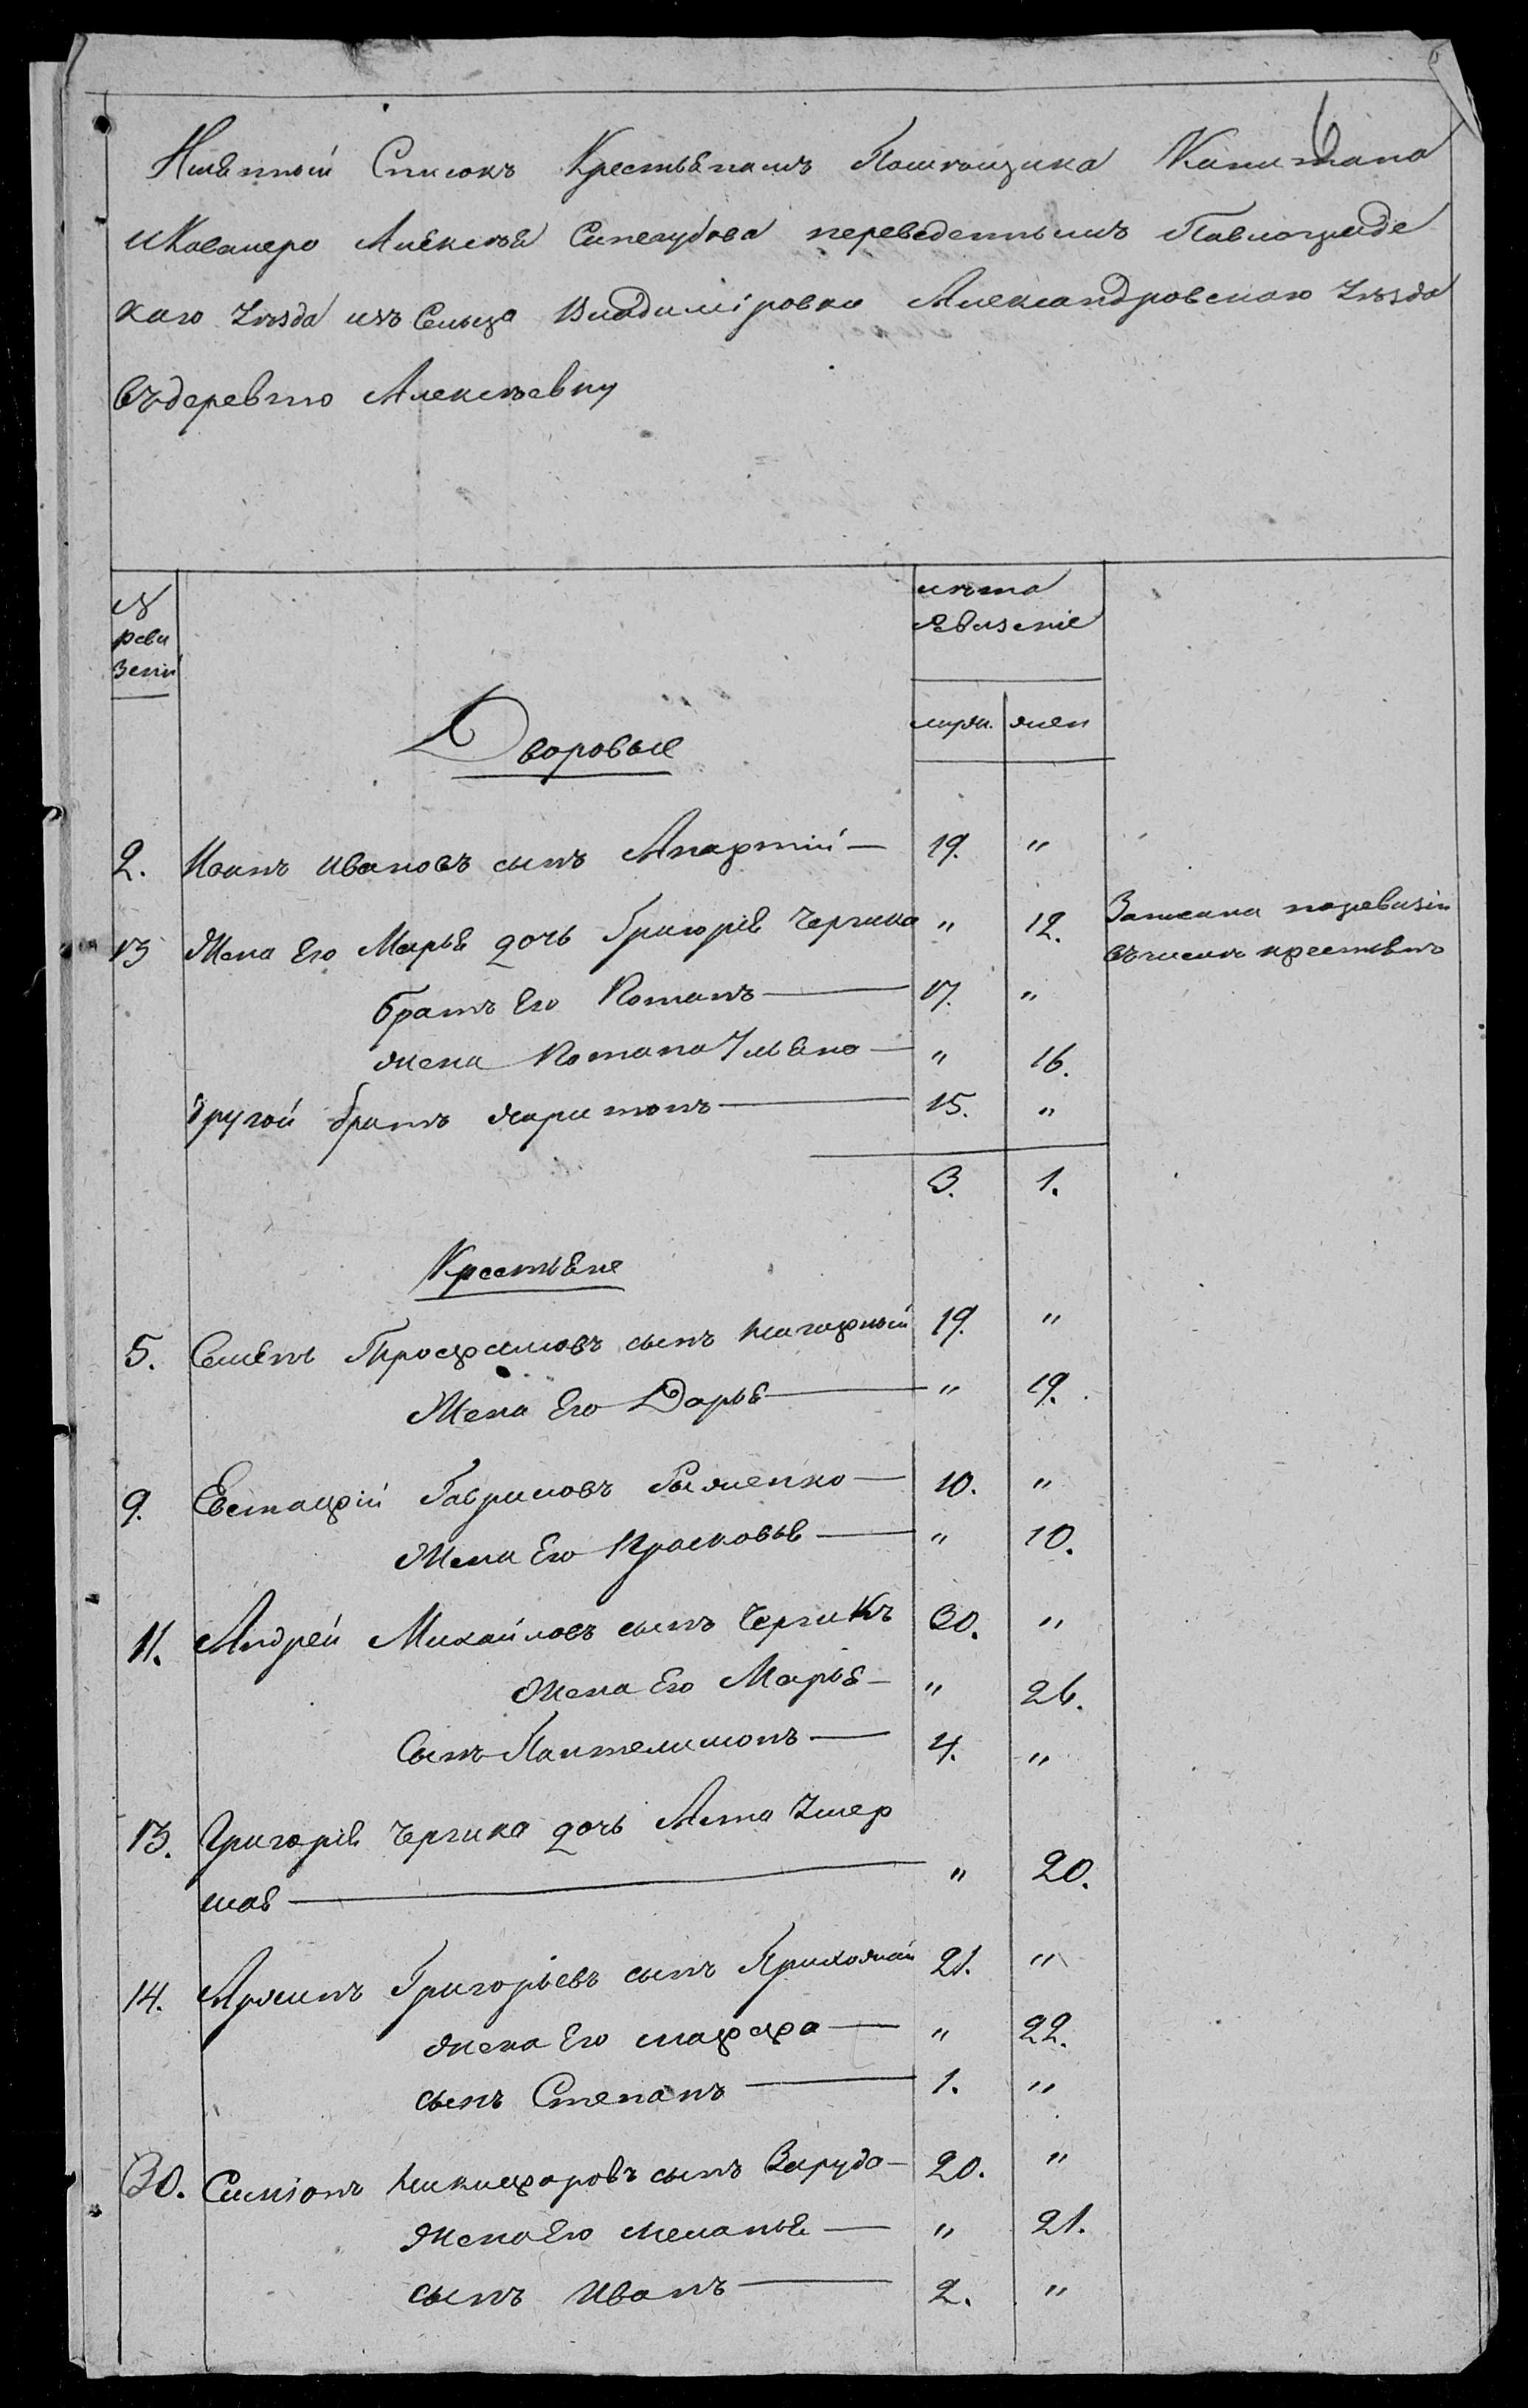 6
Имѣнной Списокъ Крестьянамъ Помѣщика Капитана
и Кавалера Алексѣя Синегубова переведеннымъ Павлоградс
каго уѣзда изъ Сельца Владиміровки Александровскаго уѣзда
въ деревню Алексѣевку
№
реви
зскій
лѣта
ревизские
муж. жен
Дворовые
2. Иванъ Ивановъ сынъ 19. "
13 Жена Его Марья дочь Григорія Чергика " 12. Записана поревизіи
въ числѣ крестьянъ
братъ Его Романъ — 17. "
жена Романа Ульяна — " 16.
другой братъ Харитонъ — 15. "
3. 1.
Крестьяне
5. Семенъ Трофимовъ сынъ Нагорный 19. "
Жена Его Дарья — " 19.
9. Евстафій Гавриловъ — 10. "
Жена Его Прасковья — " 10.
11. Андрей Михайловъ сынъ Чергикъ 30. "
Жена Его Марья — " 26.
Сынъ Пантелимонъ — 4. "
13. Григорія Чергика дочь Анна Умер
шая — " 20.
14. Григорьевъ сынъ Прихожай 21. "
жена Его Марфа — " 22.
сынъ Степанъ — 1. "
30. Симіонъ Никифоровъ сынъ Заруда — 20. "
Жена Его Меланья — " 21.
сынъ Иванъ — 2. "